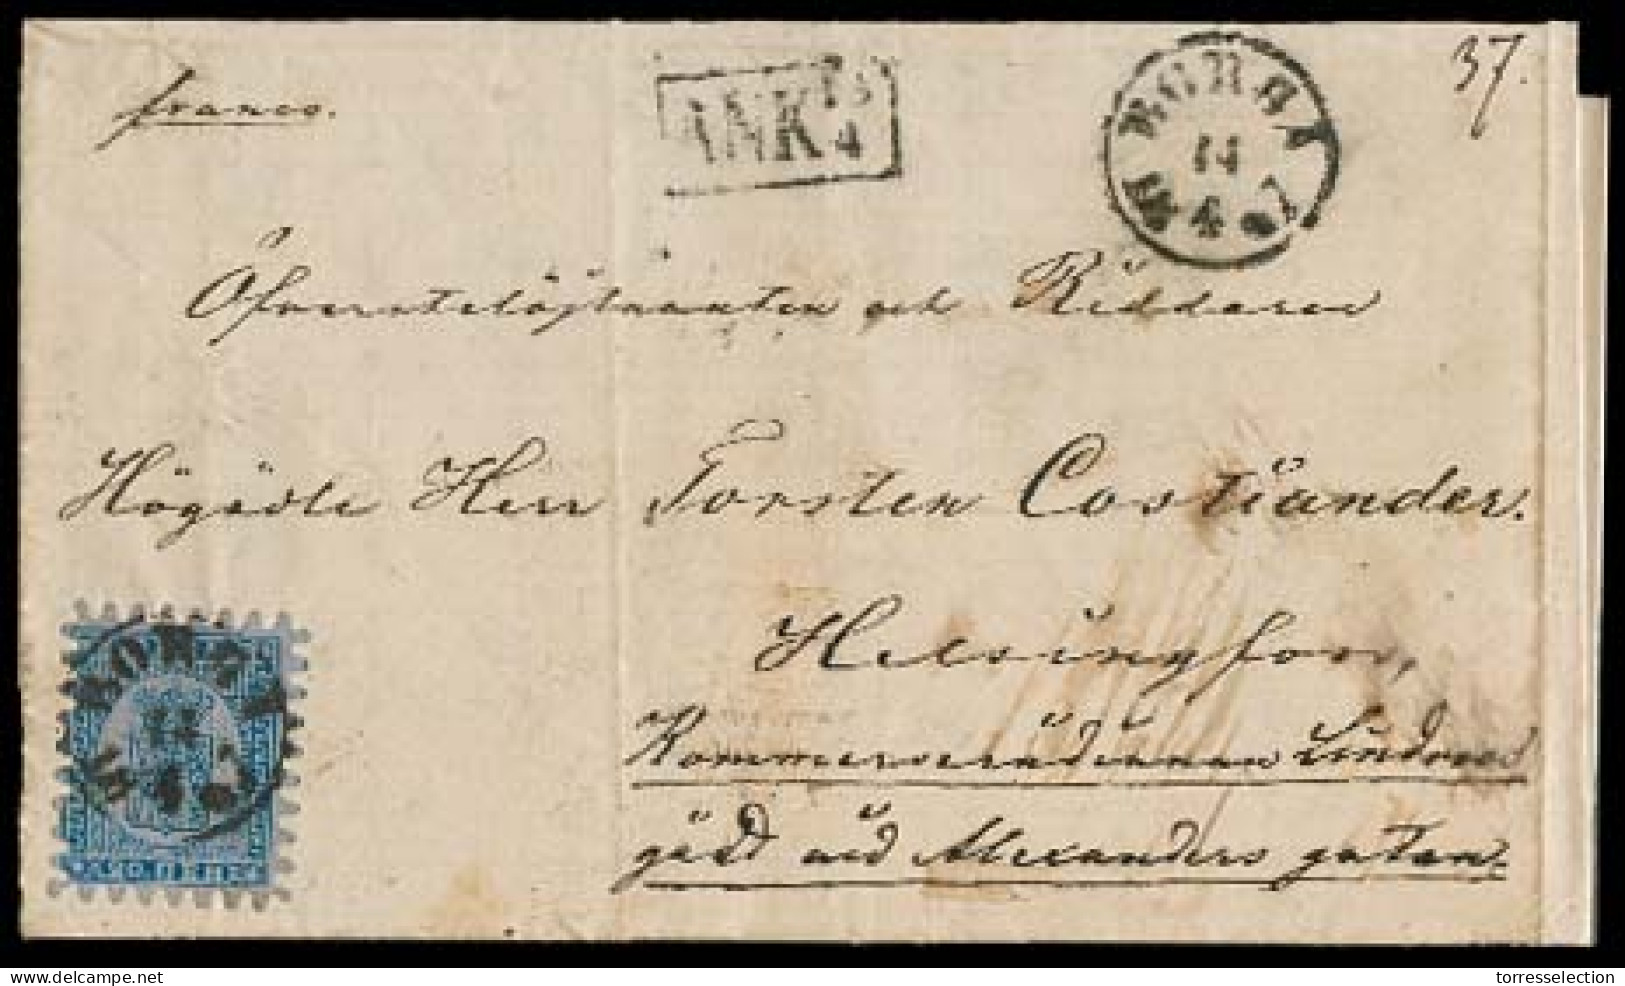 37.
franco.
ANK 15
4
BORGÅ
14
4
Öfverstelöjtnanten och Riddaren
Högädle Herr Torsten Costiander.
Helsingfors,
Kommerserådinnan Lindroos
gård vid Alexanders gatan.
BORGÅ
14
4
www.delcampe.net
torresselection